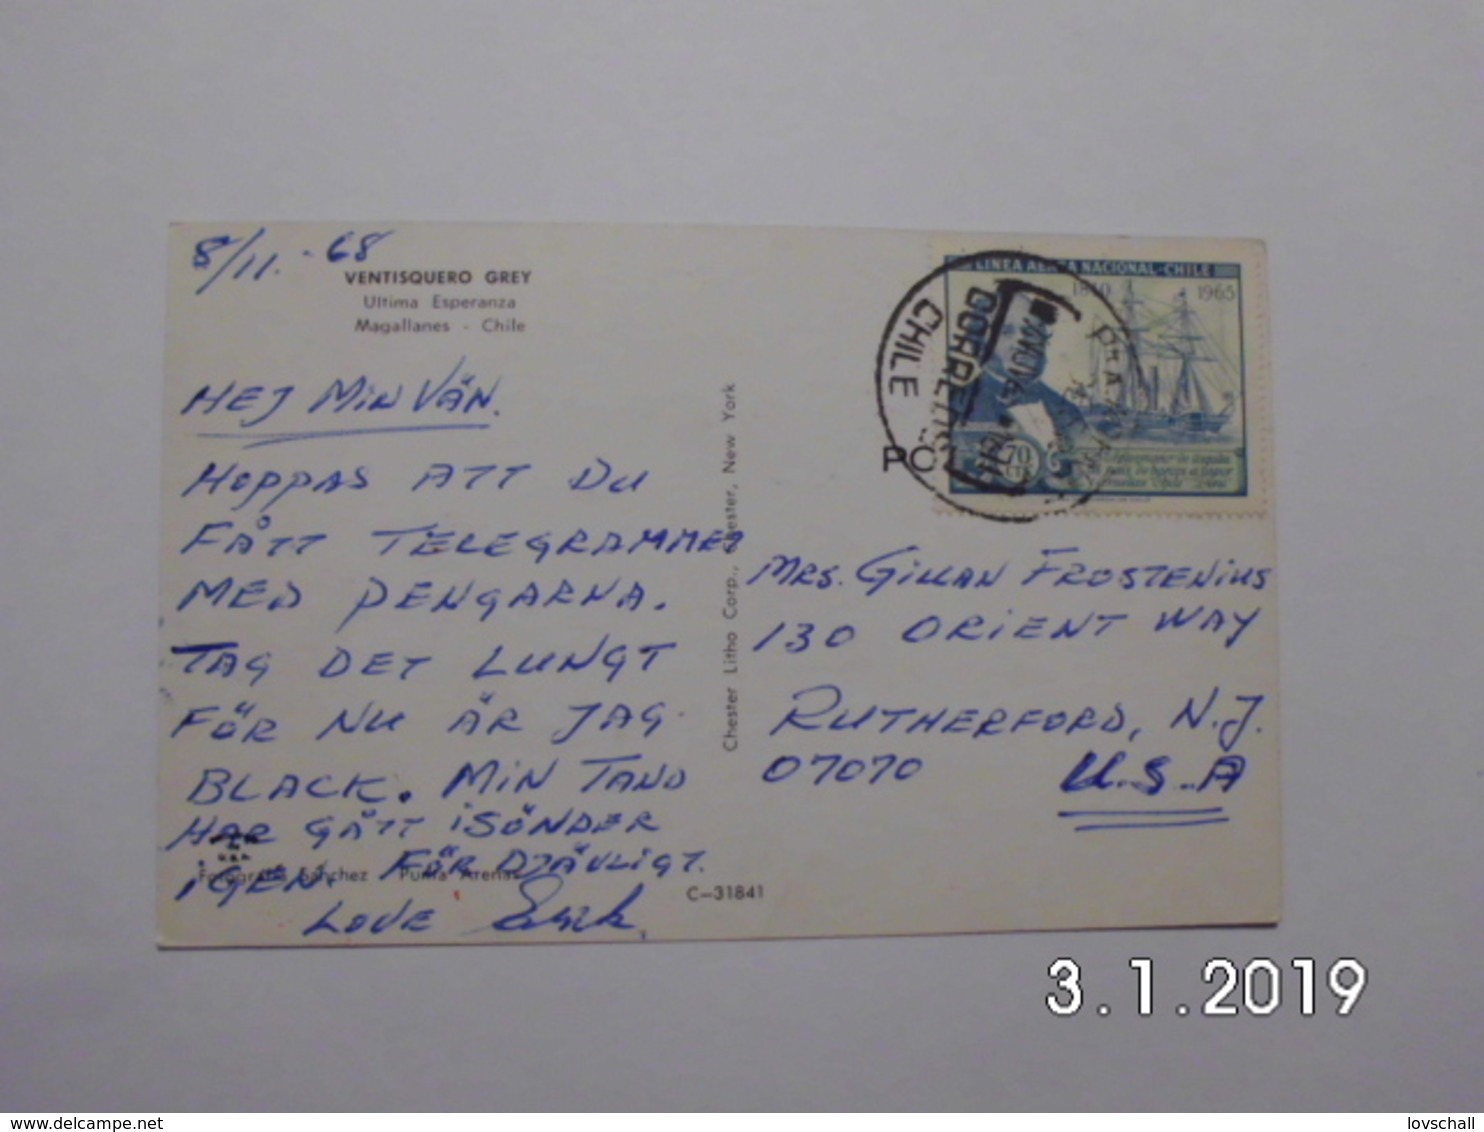 8/11.-68
VENTISQUERO GREY
Ultima Esperanza
Magallanes - Chile
HEJ MIN VÄN.
HOPPAS ATT DU
FÅTT TELEGRAMMET
MED PENGARNA.
TAG DET LUNGT
FÖR NU ÄR JAG
BLACK. MIN TAND
HAR GÅTT ISÖNDER
IGEN. FÖR DJÄVLIGT.
LOVE
Fotografia Sanchez - Punta Arenas
C-31841
Chester Litho Corp., Chester, New York
LINEA AEREA NACIONAL-CHILE
1840 1965
70
CORREOS
CHILE
MRS. GILLAN FROSTENIUS
130 ORIENT WAY
RUTHERFORD, N.J.
07070
U.S.A
3.1.2019
www.delcampe.net
lovschall